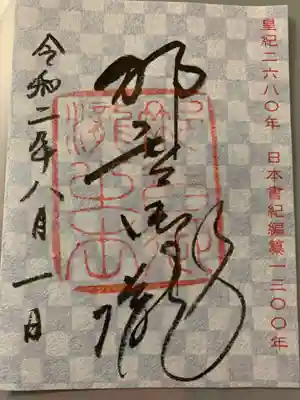 皇紀二六八〇年　日本書紀編纂一三〇〇年
那智御瀧
令和二年八月一日